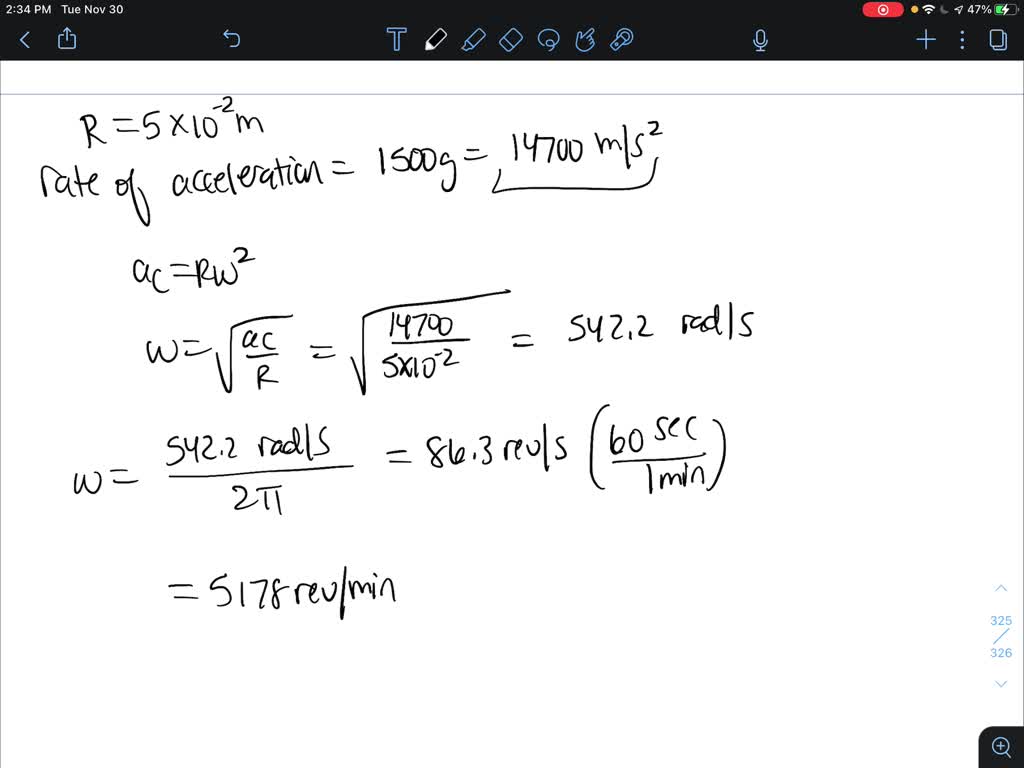 2:34 PM Tue Nov 30 47%
R = 5×10⁻² m
rate of acceleration = 1500g = 14700 m/s²
ac = Rω²
ω = √(ac/R) = √(14700/5×10⁻²) = 542.2 rad/s
ω = 542.2 rad/s / 2π = 86.3 rev/s (60 sec / 1 min)
= 5178 rev/min
325
326